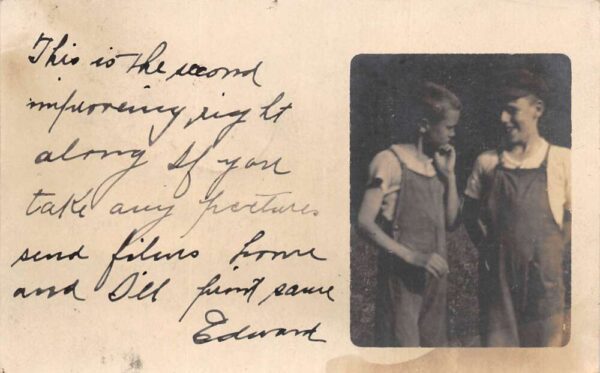 This is the second
improveing right
along If you
take any pectures
send films home
and I'll print same
Edward